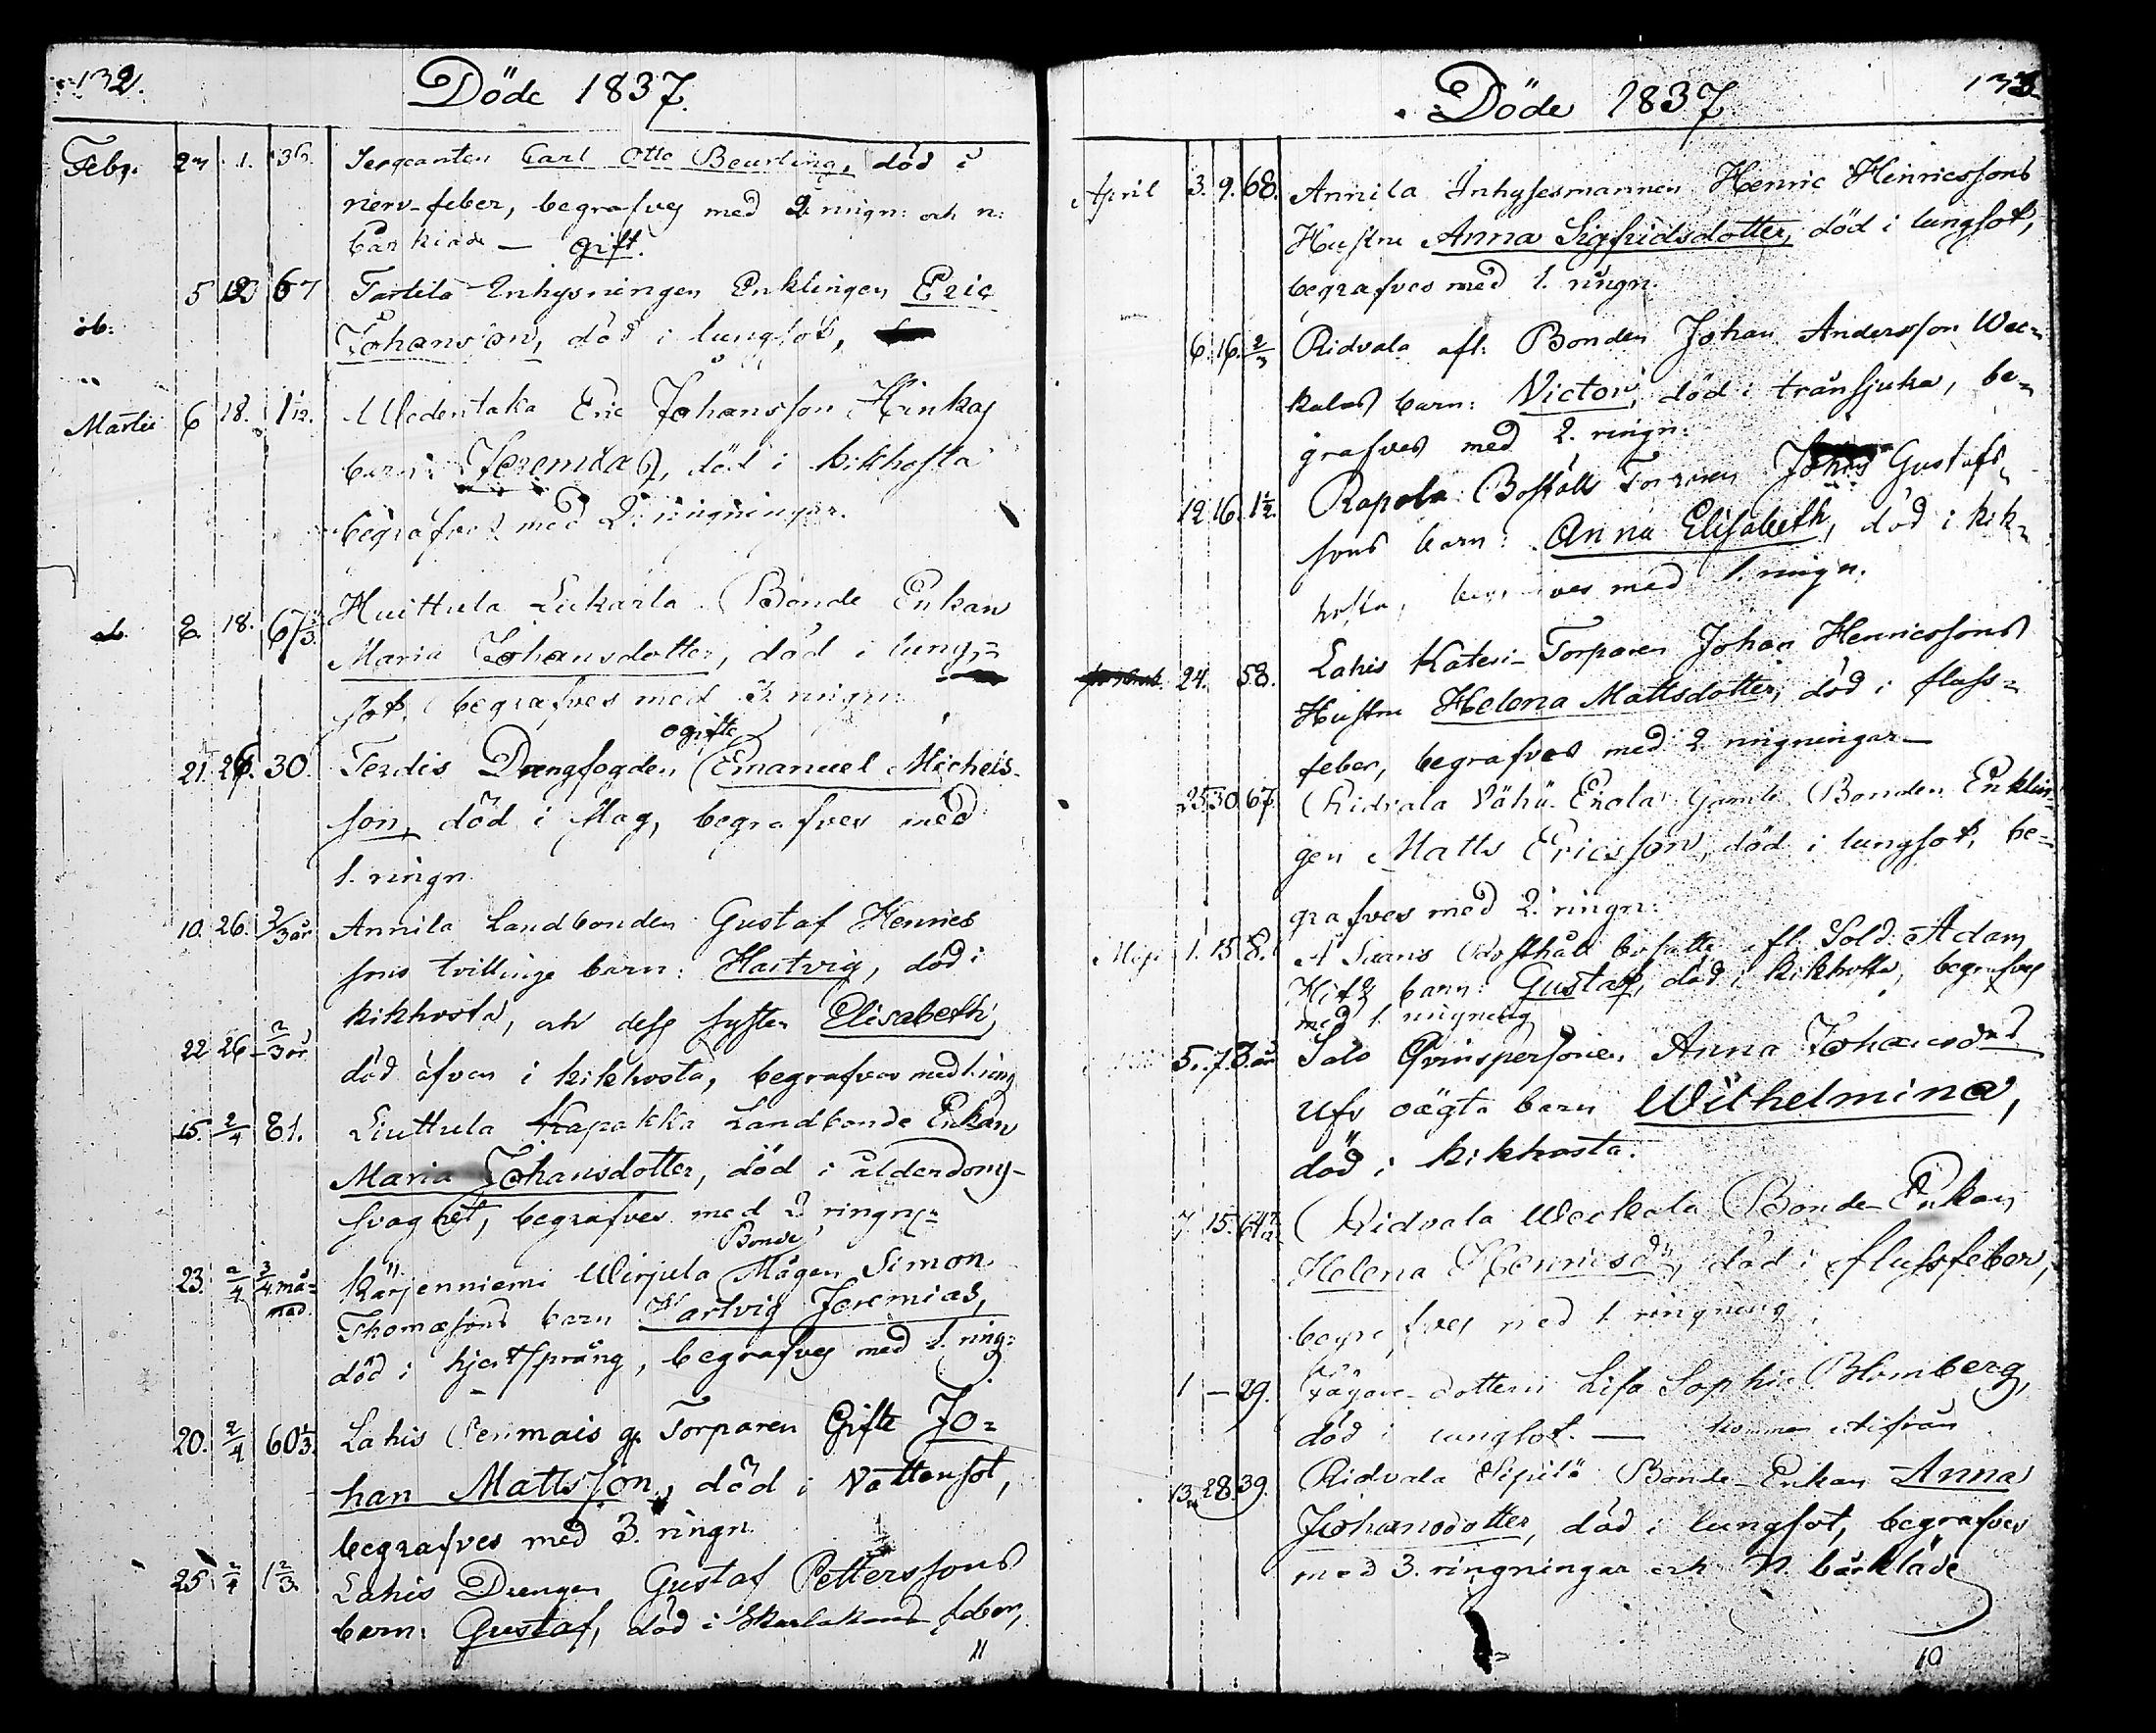 132.
Döde 1837.
Febr. 1. 36. Sergeanten Carl Otto Beurling, död i
nerv-feber, begrafves med 2 ringn: och n:
bårkläde — gift.
5 12 67 Inhysningen Enklingen Eric
Johansson, död i lungsot,
Martii 6 18. 1 1/12. Uldentaka Eric Johansson Hinkas
barn: Jeremias, död i kikhosta
begrafves med 2 ringningar.
8. 18. 67 1/3 Huittula Lukarla Bonde Enkan
Maria Johansdotter, död i lung-
sot, begrafves med 3 ringn:
ogifte
21. 26. 30. Terdis Drengfogden Emanuel Michels-
son, död i slag, begrafves med
1. ringn.
10. 26. 2/3 år Annila Landbonden Gustaf Henrics
sons tvillinge barn: Hartvig, död i
kikhosta, och dess syster Elisabeth,
22 26 2/3 år död äfven i kikhosta, begrafves med 1. ring
15. 2/4 81. Liuttula Kapakka Landbonde Enkan
Maria Johansdotter, död i ålderdoms-
svaghet, begrafves med 2 ringn:
Bonde
23. 2/4 3/4 må- Kärjenniemi Wirjula Mågen Simon
nad. Thomæsons barn Hartvig Jeremias,
död i hjertsprång, begrafves med 1. ring:
20. 2/4 60 1/3. Lahis Torparen Gifte Jo-
han Mattsson, död i Vattensot,
begrafves med 3. ringn.
25 2/4 1 2/3. Lahis Drengen Gustaf Petterssons
barn: Gustaf, död i Skarlakans feber,
11
133
Döde 1837
April 3. 9. 68. Annila Inhysesmannen Henric Henricssons
Hustru Anna Sigfridsdotter, död i lungsot,
begrafves med 1. ringn.
6. 16. 2/3 Ridvala afl: Bonden Johan Andersson Wec-
kalas barn: Victor, död i trånsjuka, be-
grafves med 2. ringn:
12. 16. 1 1/2. Rapola Boställs Torparen Johans Gustafs-
sons barn: Anna Elisabeth, död i kik-
hosta, med 1. ringn.
24. 58. Lahis Torparen Johan Henricssons
Hustru Helena Mattsdotter, död i fluss-
feber, begrafves med 2 ringningar—
25 30 67 Ridvala Vähä Erola Gamle Bonden Enklin-
gen Matts Ericsson, död i lungsot, be-
grafves med 2. ringn:
Maji 1. 15 8. afl. Sold. Adam
barn: Gustaf, död i kikhosta, begrafves
med 1. ringning
5. 7. 3. år Salo Qvinspersonen Anna Johansd:rs
Ufs oägta barn Wilhelmina,
död i kikhosta.
7 15. Ridvala Weckala Bonde Enkan
Helena Henricsdr, död i flussfeber,
med 1. ringning
1 — 29. dottern Lisa Sophia Blomberg,
död i lungsot. —
13. 28. 39. Ridvala Sipilä Bonde-Enkan Anna
Johansdotter, död i lungsot, begrafves
med 3. ringningar och N. bårkläde
10